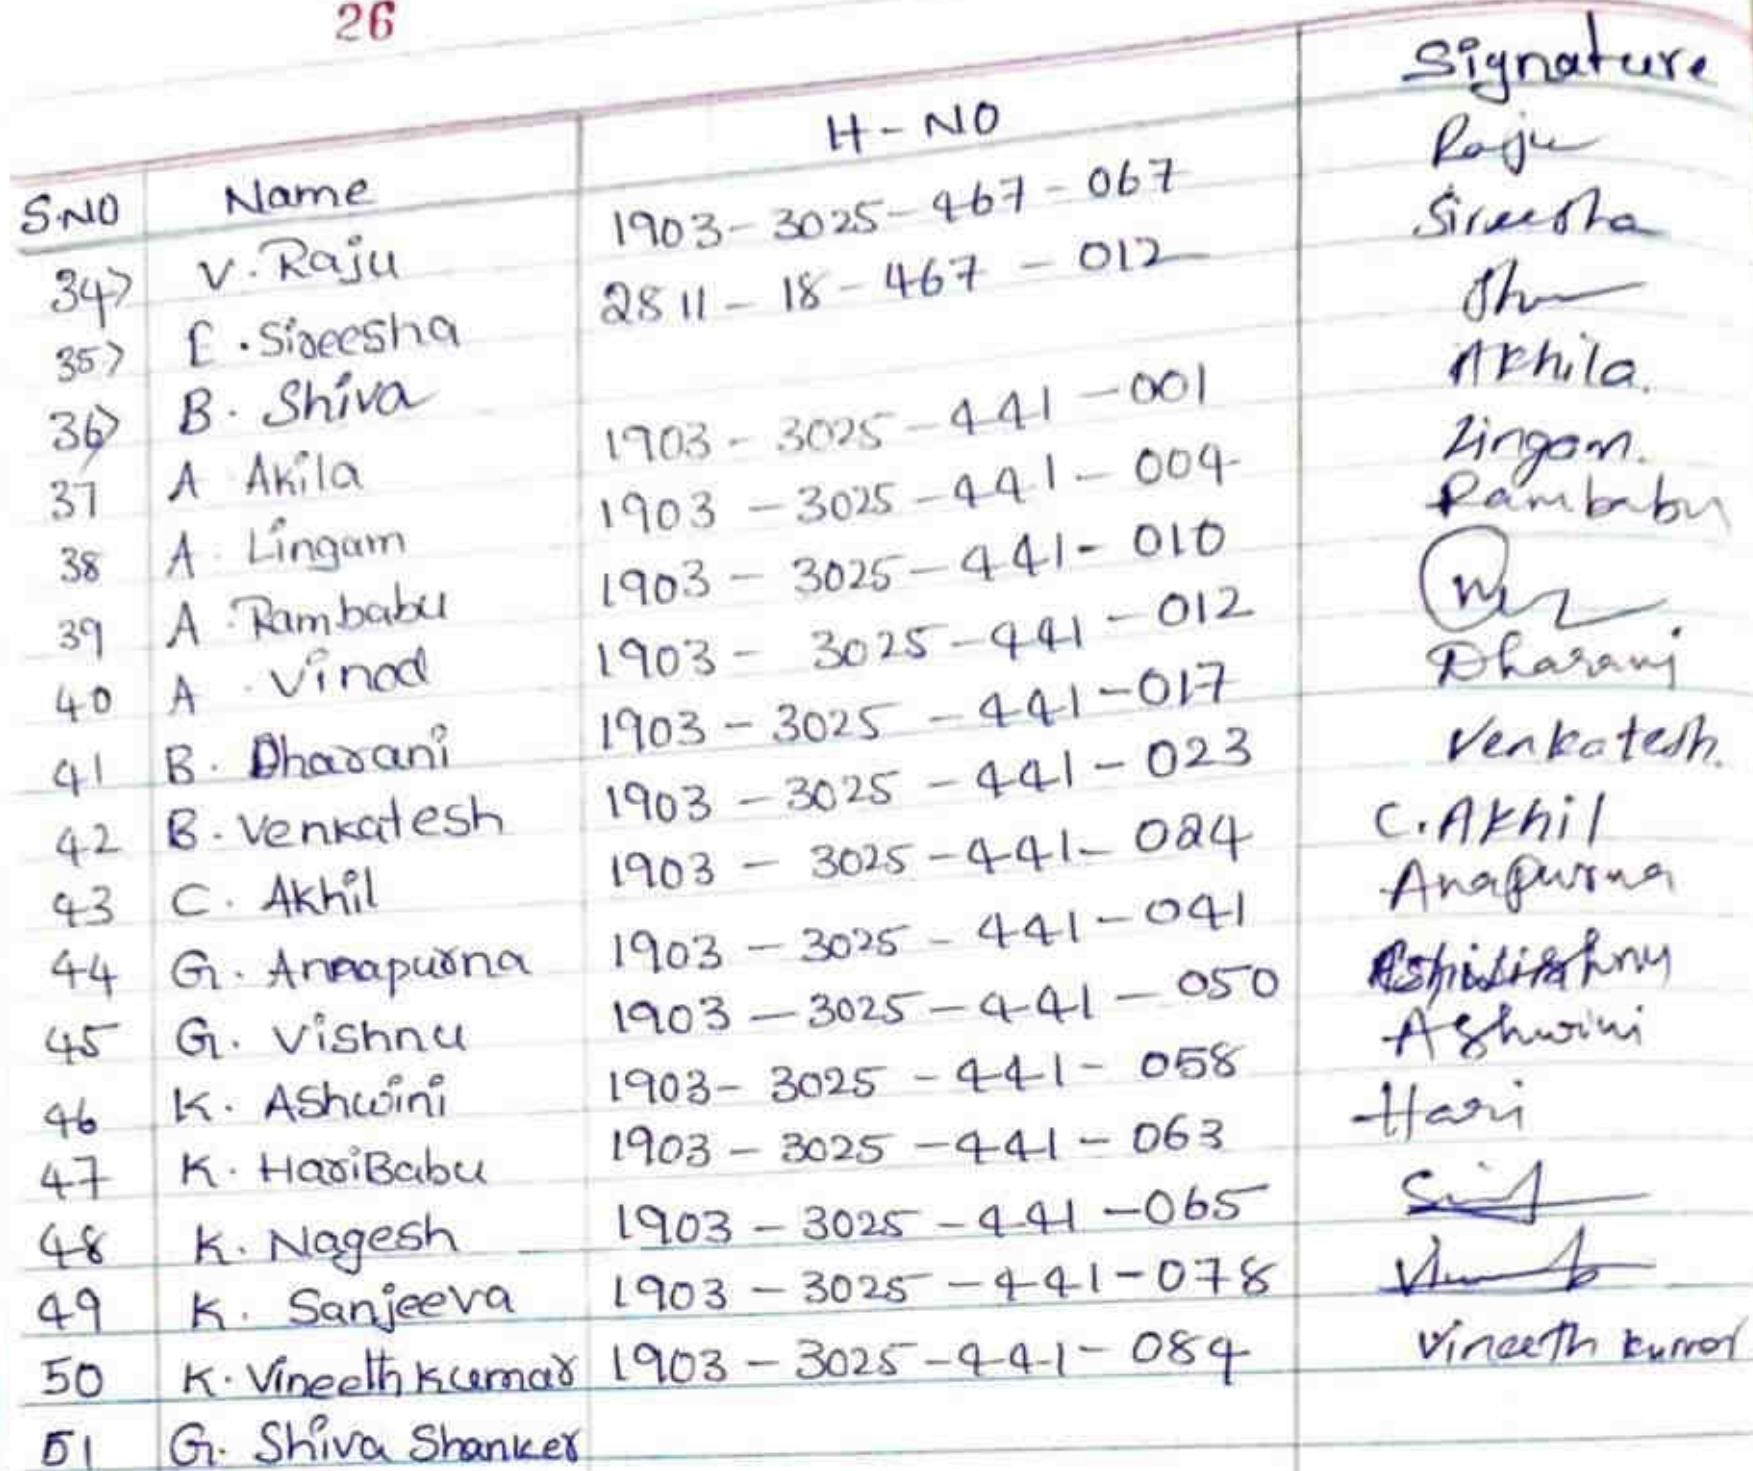 26
S.NO Name H-NO Signature
34) V. Raju 1903-3025-467-067 Raju
35) E. Sireesha 2811-18-467-012 Sireesha
36) B. Shiva
37 A Akila 1903-3025-441-001 Akhila.
38 A. Lingam 1903-3025-441-004 Lingam.
39 A. Rambabu 1903-3025-441-010 Rambabu
40 A. Vinod 1903-3025-441-012
41 B. Dharani 1903-3025-441-017 Dharani
42 B. Venkatesh 1903-3025-441-023 Venkatesh.
43 C. Akhil 1903-3025-441-024 C. Akhil
44 G. Annapurna 1903-3025-441-041 Anapurna
45 G. Vishnu 1903-3025-441-050
46 K. Ashwini 1903-3025-441-058 Ashwini
47 K. HariBabu 1903-3025-441-063 Hari
48 K. Nagesh 1903-3025-441-065
49 K. Sanjeeva 1903-3025-441-078
50 K. Vineeth Kumar 1903-3025-441-084 Vineeth Kumar
51 G. Shiva Shanker